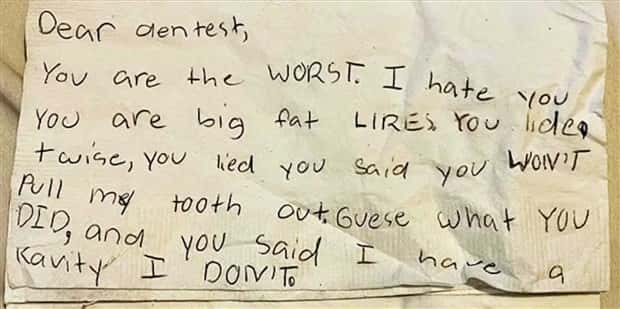 Dear dentest,
You are the WORST. I hate you
You are big fat LIRES You lideo
twise, you lied you said you WON'T
Pull my tooth out. Guese what YOU
DID, and you said I have a
kavity I DON'T.